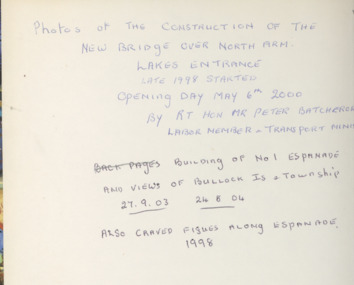 Photos of the Construction of the
New Bridge over North Arm.
Lakes Entrance
Late 1998 Started
Opening Day May 6th 2000
By Rt Hon Mr Peter Batchelor
Labor Member & Transport Mini
Back Pages Building of No 1 Espanade
and views of Bullock Is & Township
27.9.03 24 8 04
Also Carved Figues along Espanade.
1998